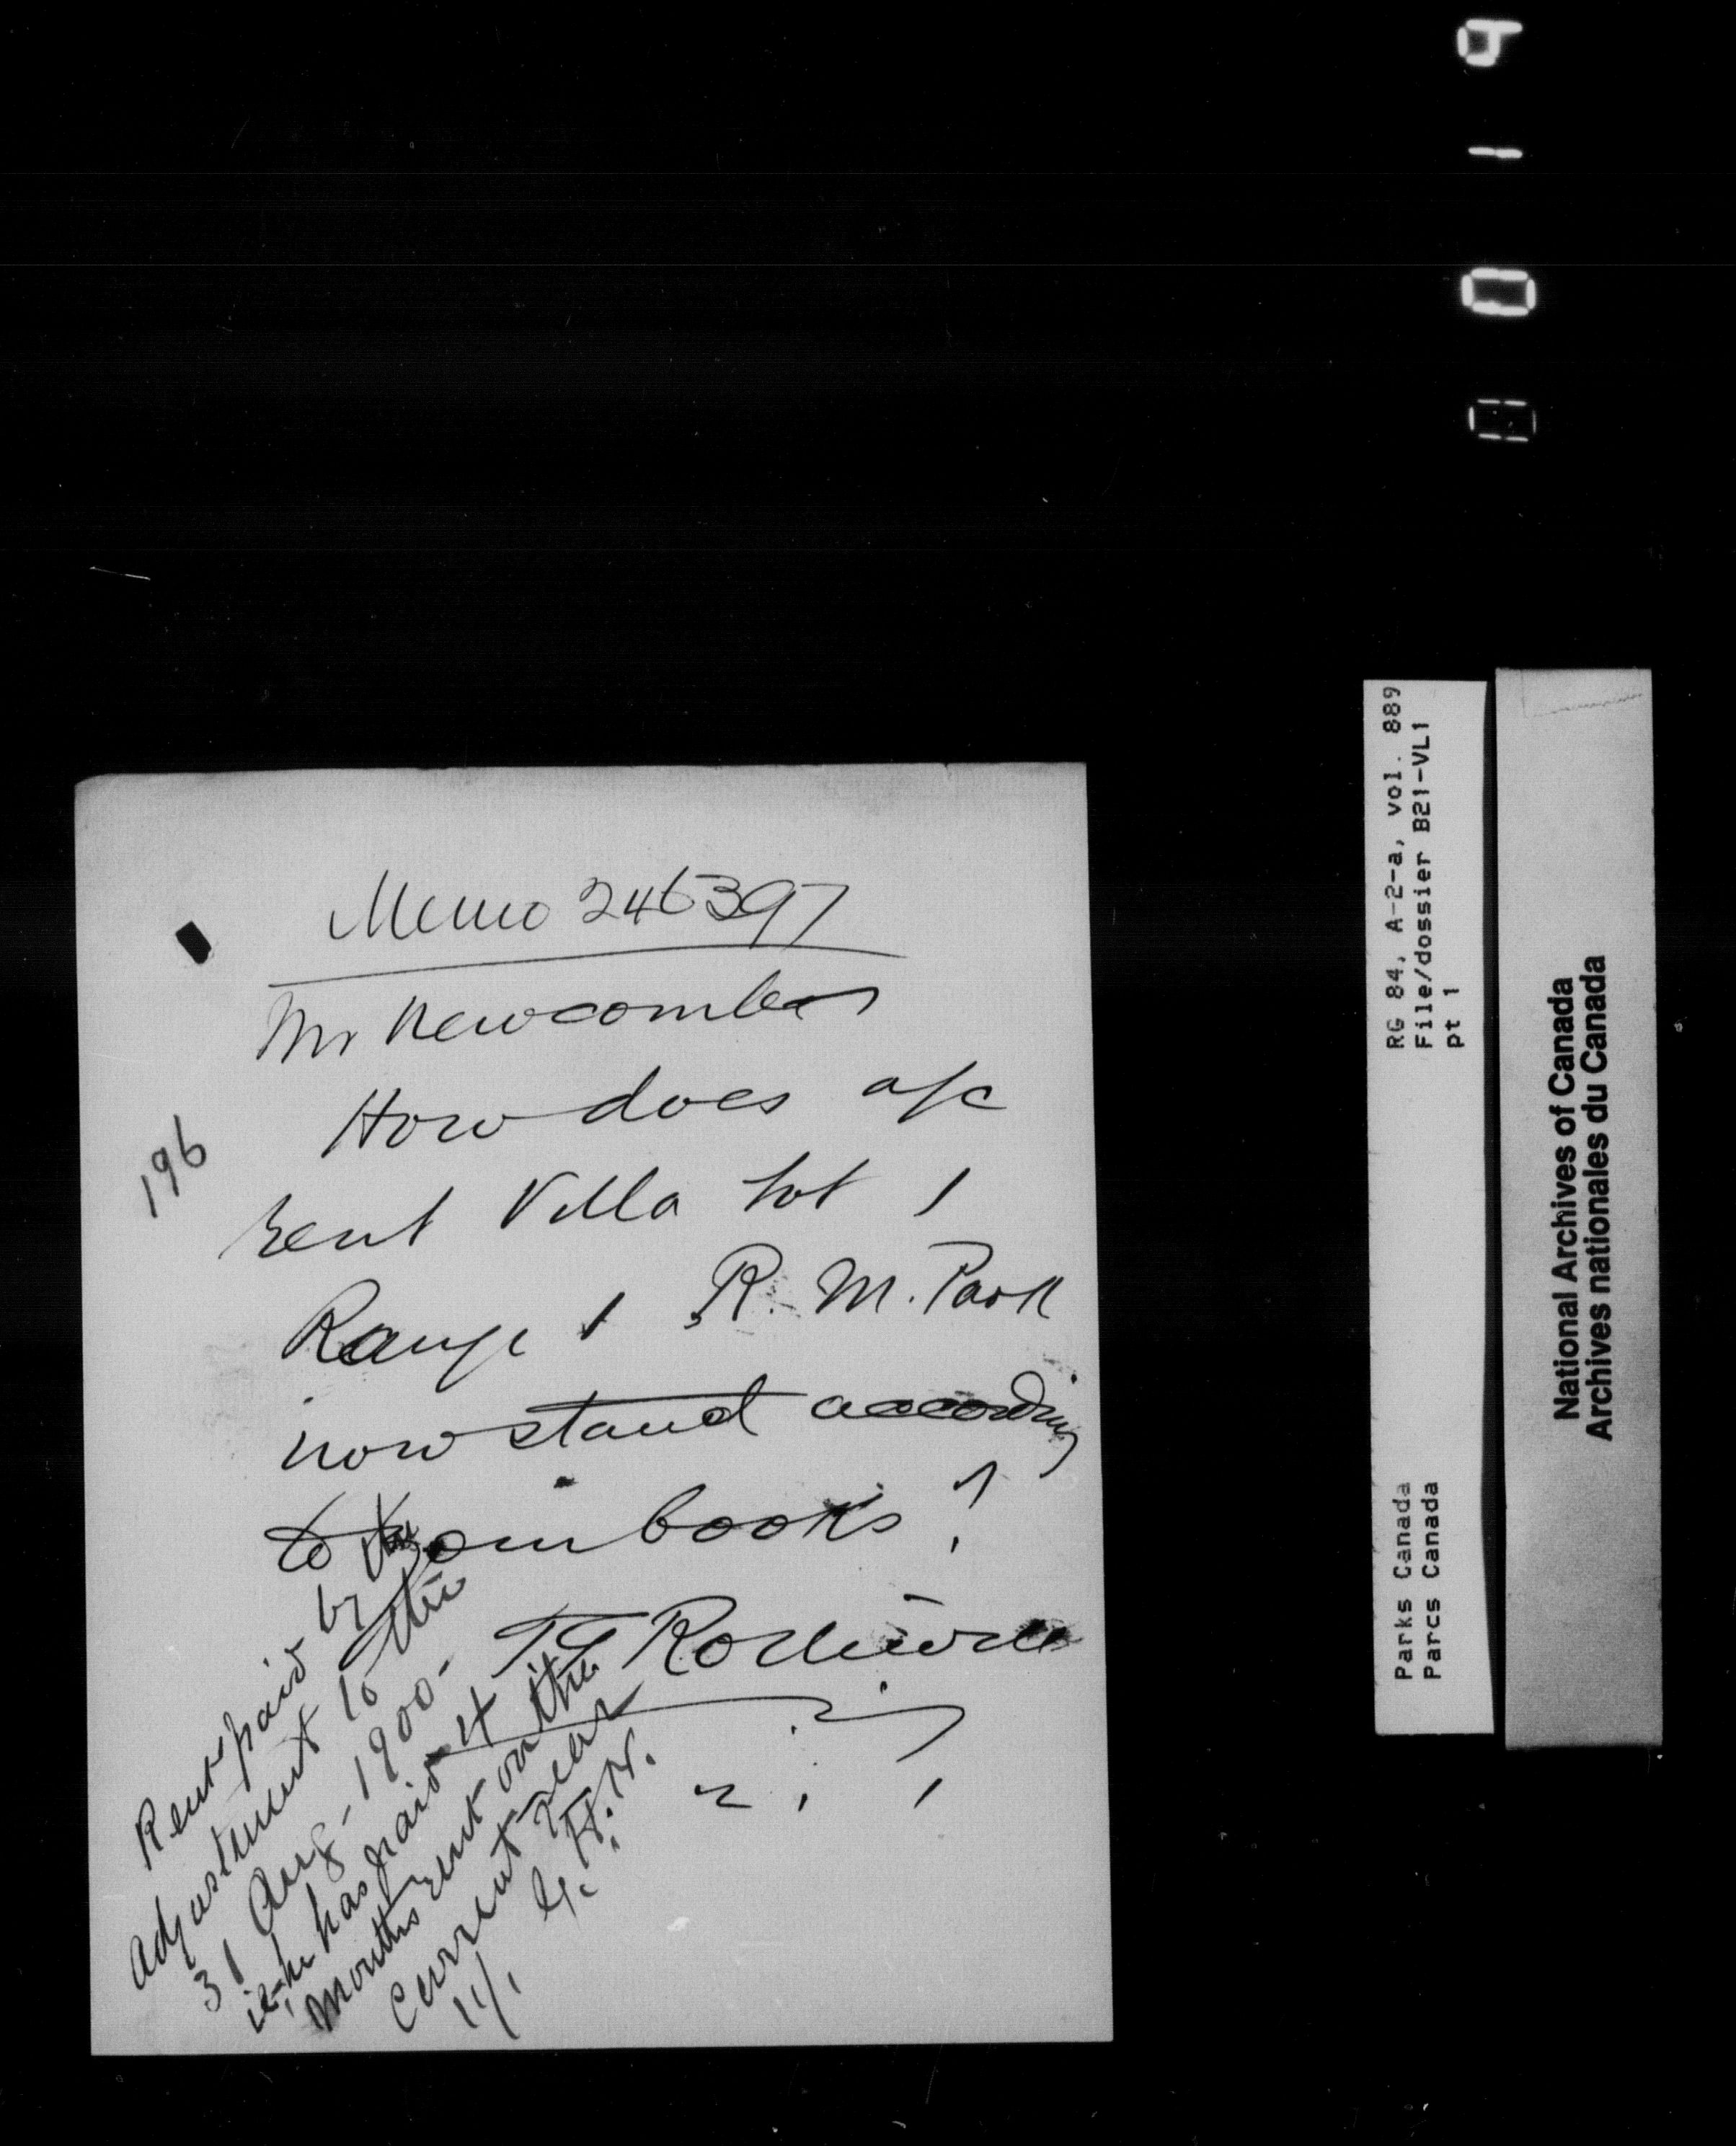 Memo 246397
Mr Newcombe
How does a/c
rent Villa Lot 1
Range 1 R. M. Park
now stand according
to our books?
Rothwell
2.1.1
196
Rent paid by the
adjustment to the
31 Aug- 1900-
i.e. he has paid 4
months rent on the
current year
H.N.
11/1
RG 84, A-2-a, vol. 889
File/dossier B21-VL1
pt 1
Parks Canada
Parcs Canada
National Archives of Canada
Archives nationales du Canada